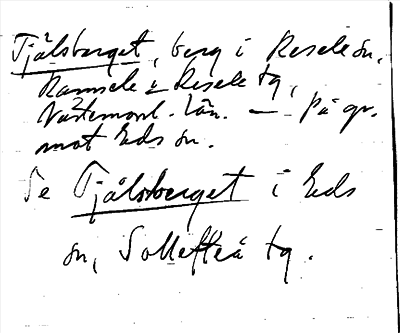 Tjälsberget, berg i Resele sn,
Ramsele o Resele tg,
Västernorrl. län. — på gr.
mot Eds sn.
Se Tjälsberget i Eds
sn, Sollefteå tg.